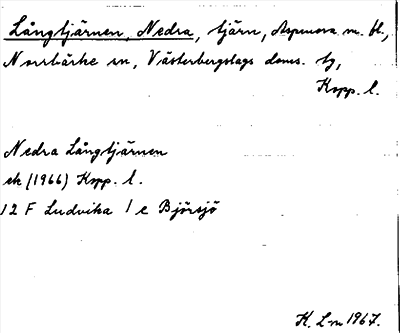 Långtjärnen, Nedra, tjärn, Aspmora m. fl.,
Norrbärke sn, Västerbergslags doms. tg,
Kopp. l.
Nedra Långtjärnen
ek (1966) Kopp. l.
12 F Ludvika 1 e Björsjö
K. L-m 1967.